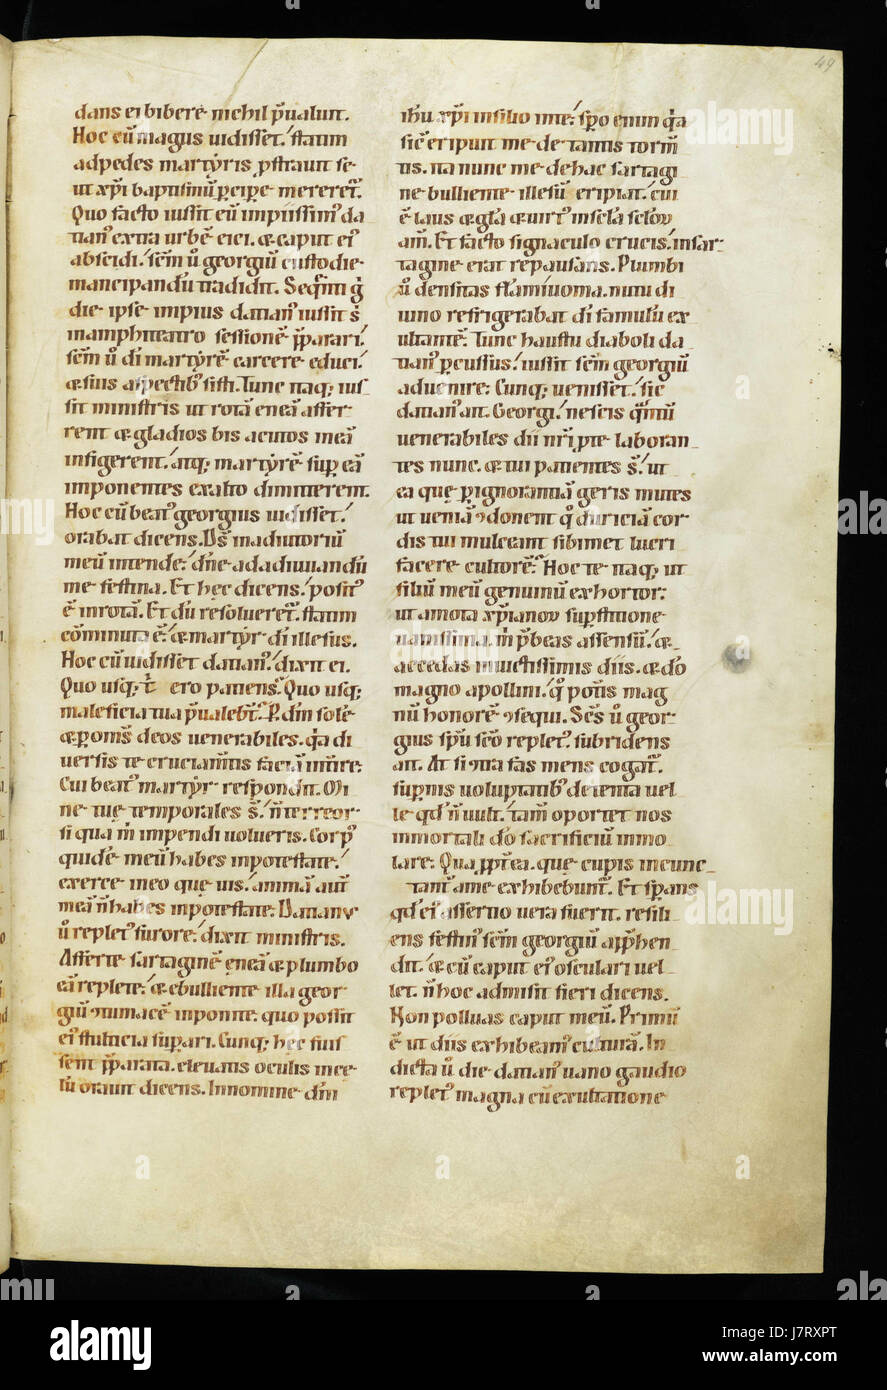 49
dans ei bibere nichil p̄ualuit.
Hoc cū magus uidisset. statim
ad pedes martyris ꝓstrauit se
ut xp̄i baptismū ꝑcipe mereret᷑.
Quo facto iussit eū impiissim᷒ da
tian᷒ extra urbē eici. æ caput ei᷒
abscidi. sc̄m ū georgiū custodie
mancipandū tradidit. Seq̄nti
die ipse impius datian᷒ iussit s̄
in amphiteatro sessionē p̄parari.
sc̄m ū di martyrē carcere educi.
æ suis aspectib᷒ sisti. Tunc itaq; ius
sit ministris ut rotā eneā affer
rent æ gladios bis acutos in eā
infigerent. atq; martyrē sup eā
imponentes ex alto dimitterent.
Hoc cū beat᷒ georgius uidisset.
orabat dicens. Ds̄ in adiutoriū
meū intende. dn̄e ad adiuuandū
me festina. Et hec dicens. posit᷒
ē in rotā. Et dū resolueret᷑. statim
cōminuta ē. æ martyr di illesus.
Hoc cū uidisset datian᷒. dixit ei.
Quo usq; ero patiens. Quo usq;
maleficia tua p̄ualebt̄. P dm̄ solē
æ ꝑ om̄s deos uenerabiles. q̄a di
uersis te cruciam̄tis faciā int̄ire.
Cui beat᷒ martyr respondit. Mi
ne tuę temporales s̄. n̄ terreor
si qua m̄ impendi uolueris. Corp᷒
quidē meū habes in potestate.
exerce in eo que uis. animā aut̄
meā n̄ habes in potestate. Datianus
ū replet᷒ furore. dixit ministris.
Afferte sartaginē eneā æ plumbo
eā replete. æ ebulliente illa geor
giū in inponite. quo possit
ei᷒ stulticia supari. Cunq; hec fuis
sent p̄parata. eleuatis oculis in ce
lū orauit dicens. In nomine dn̄i
ih̄u xp̄i insilio in te. sp̄o enim q̄a
sic̄ eripuit me de tantis torm̄
tis. ita nunc me de hac sartagi
ne bulliente illesū eripiat. cui
ē laus æ gl̄a æ uirt᷒ in sc̄la sc̄lor
am̄. Et facto signaculo crucis. in sar
tagine erat repausans. Plumbi
ū densitas flāmiuoma. nutu di
uino refrigerabat di famulū ex
ultantē. Tunc haustu diaboli da
tian᷒ ꝑcussus. iussit sc̄m georgiū
aduenire. Cunq; uenisset. sic
datian᷒ ait. Georgi. nescis q̄m̄
uenerabiles dii nr̄i ꝓ te laboran
tes nunc. æ tui patientes s̄. ut
ea que ꝑ ignorantiā geris mites
ut ueniā ꝯdonent q̄ duriciā cor
dis tui mulceant sibimet lucri
facere cultorē. Hoc te itaq; ut
filiū meū genuinū exhortor.
ut amota xp̄ianor supstitione
uanissima. m̄ p̄beas assensū. æ
accedas inuictissimis diis. æ do
magno apollini. q̄ potis̄ mag
nū honorē ꝯsequi. Sc̄s ū geor
gius sp̄u sc̄o replet᷒. subridens
ait. At si ista fas mens cogat̄.
supnis uoluptatib᷒ detenta uel
le qd̄ n̄ uult. tam̄ oportet nos
inmortali do sacrificiū immo
lare. Qua ꝓpt̄ ea. que cupis incunc
tanr̄ a me exhibebunt᷑. Et sp̄ans
qd̄ ei᷒ assertio uera fuerit. resili
ens festin᷒ sc̄m georgiū app̄hen
dit. æ cū caput ei᷒ osculari uel
let. n̄ hoc admisit fieri dicens.
Non polluas caput meū. Primū
ē ut diis exhibeam᷒ culturā. In
dicta ū die datian᷒ uano gaudio
replet᷒ magna cū exultatione
alamy
alamy
Image ID: J7RXPT
www.alamy.com